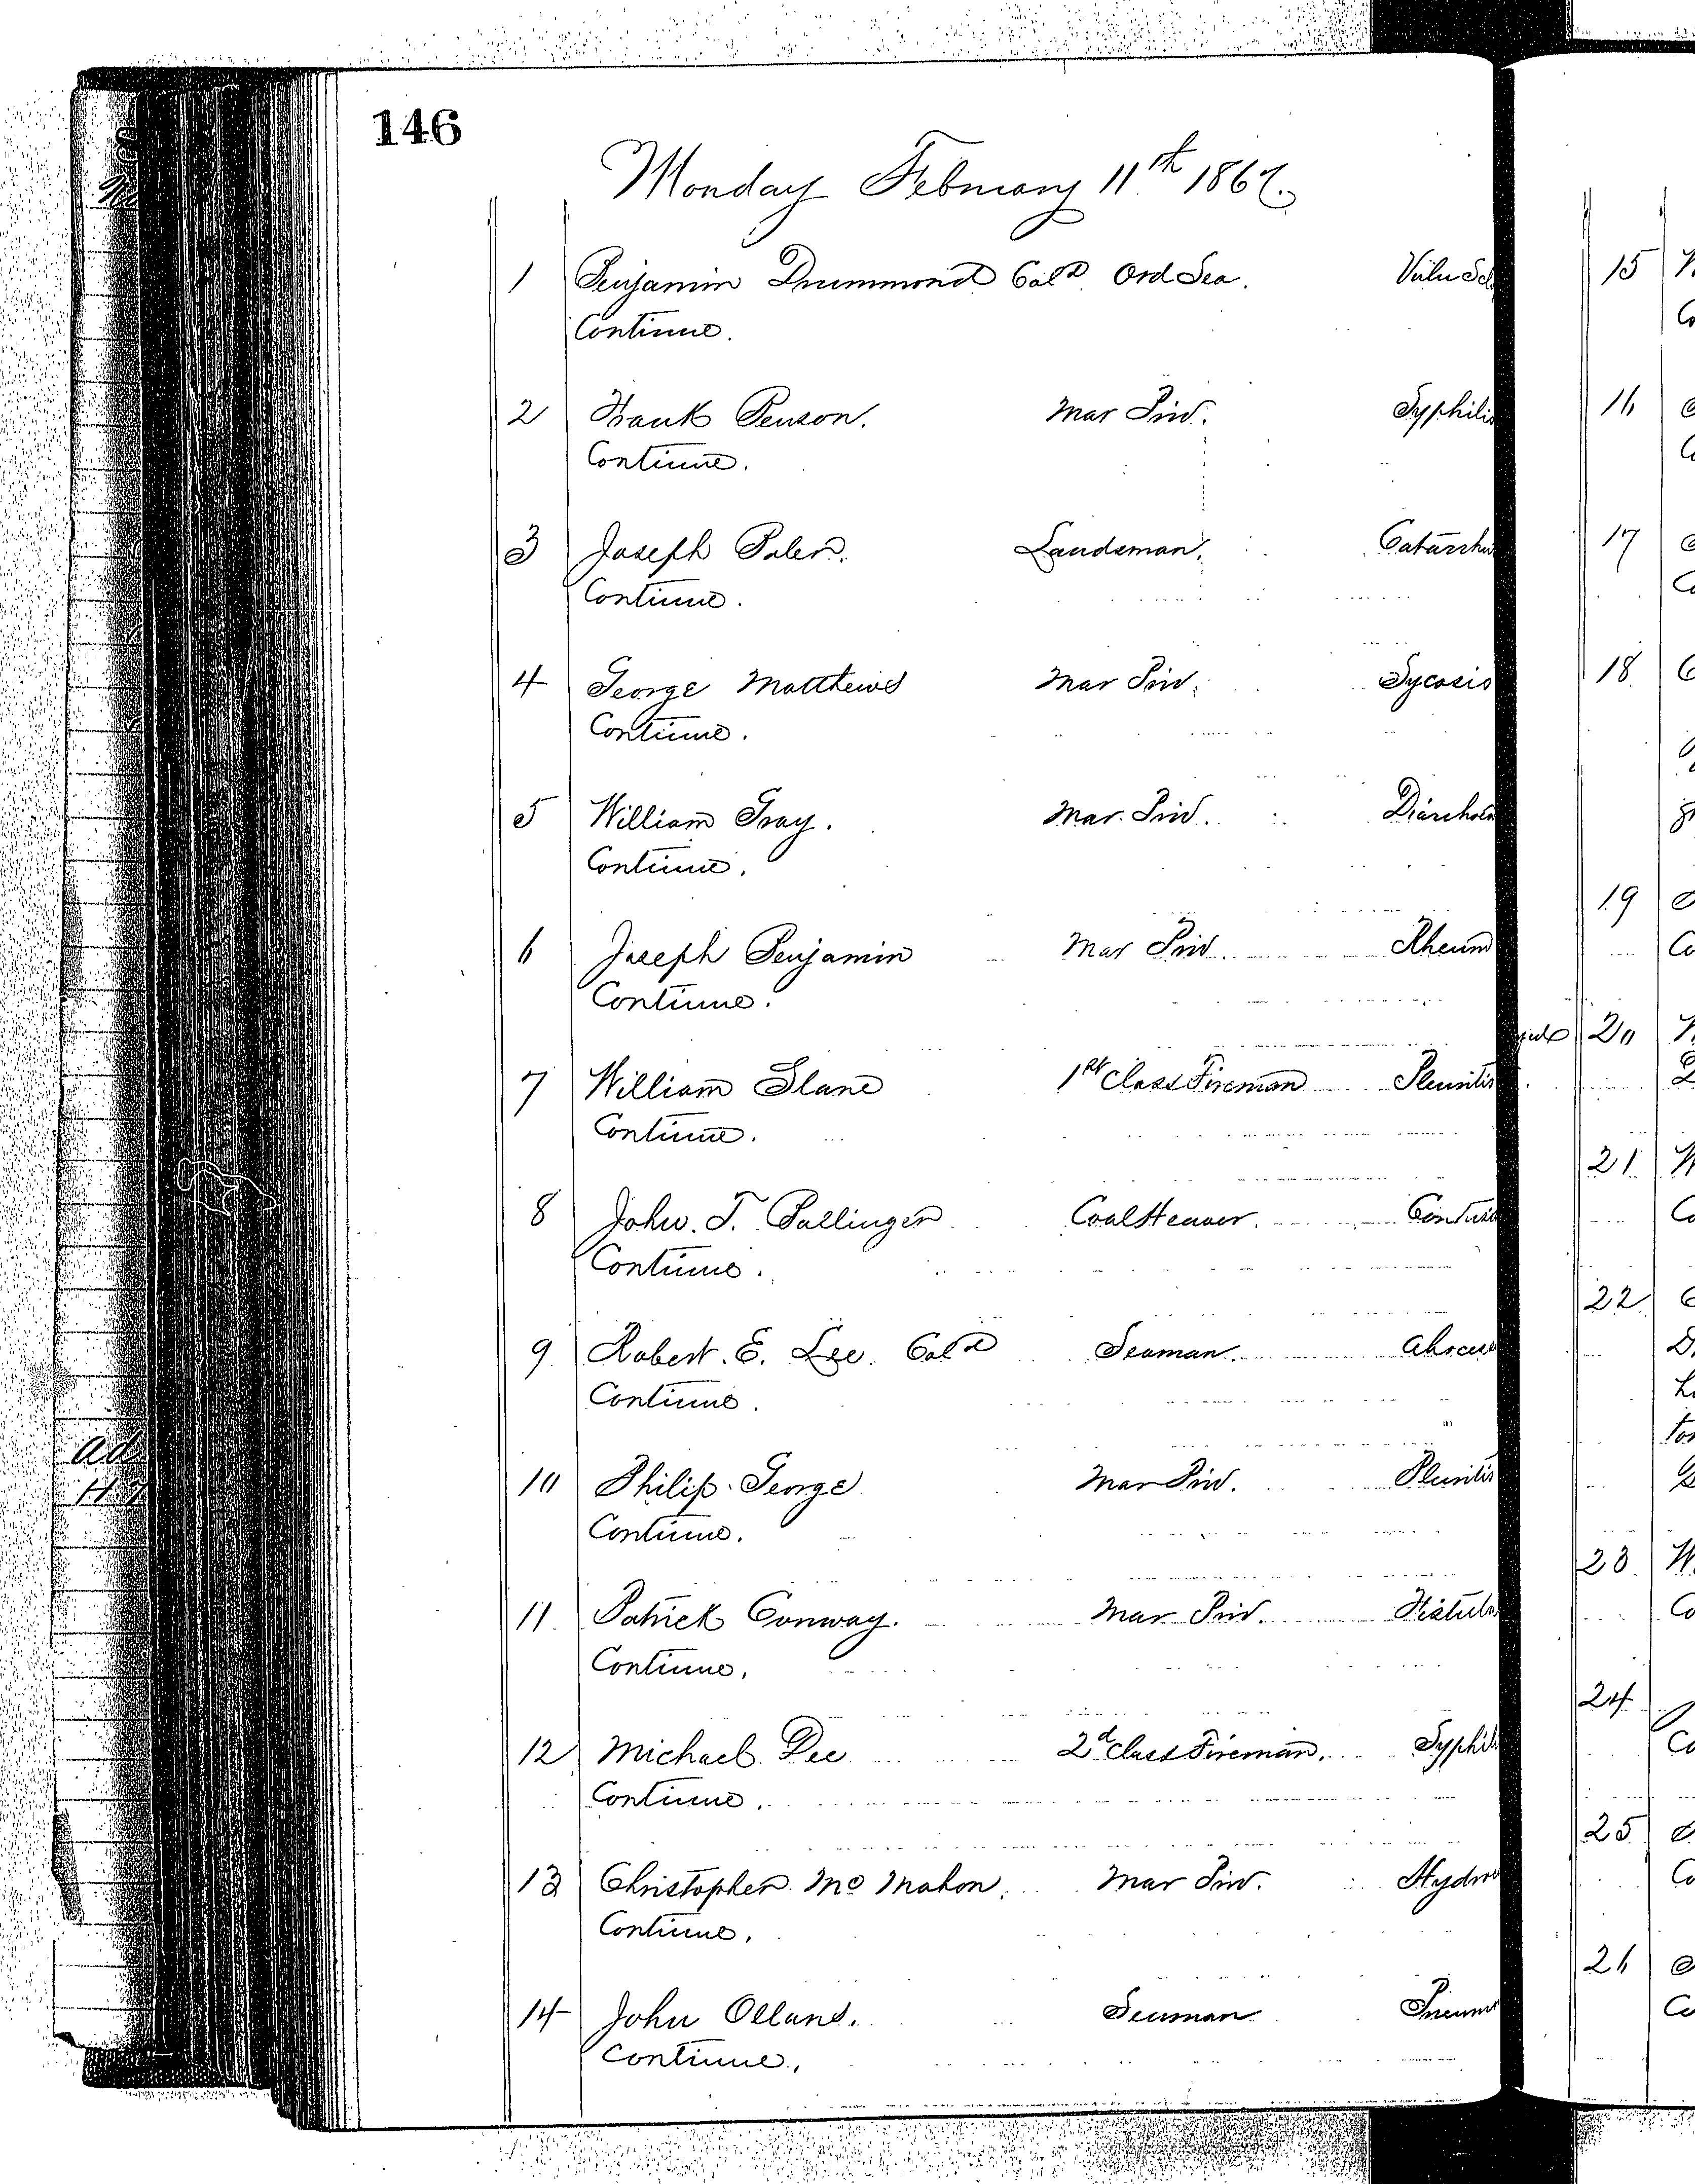 146
Monday February 11th 1867.
1 Benjamin Drummond Col'd Ord Sea. Vulu Scl
Continue.
2 Frank Benson. Mar Priv. Syphilis
Continue.
3 Joseph Baler. Landsman. Catarrhu
Continue.
4 George Matthews Mar Priv. Sycosis
Continue.
5 William Gray. Mar. Priv. Diarrhoea
Continue.
6 Joseph Benjamin Mar Priv. Rheum
Continue.
7 William Slane 1st Class Fireman Pleuritis
Continue.
8 John. T. Ballinger Coal Heaver. Contusi
Continue.
9. Robert. E. Lee. Col'd Seaman. Abscess
Continue.
10 Philip George Mar Priv. Pleuritis
Continue.
11. Patrick Conway. Mar Priv. Fistula
Continue.
12 Michael Dee 2d Class Fireman. Syphili
Continue.
13 Christopher Mc Mahon. Mar Priv. Hydro
Continue.
14 John Olland. Seaman Pneumo
Continue.
15
Co
16
17
Co
18
19
Co
20
21
Co
22
23
Co
24
Co
25
Co
26
Co
Ad